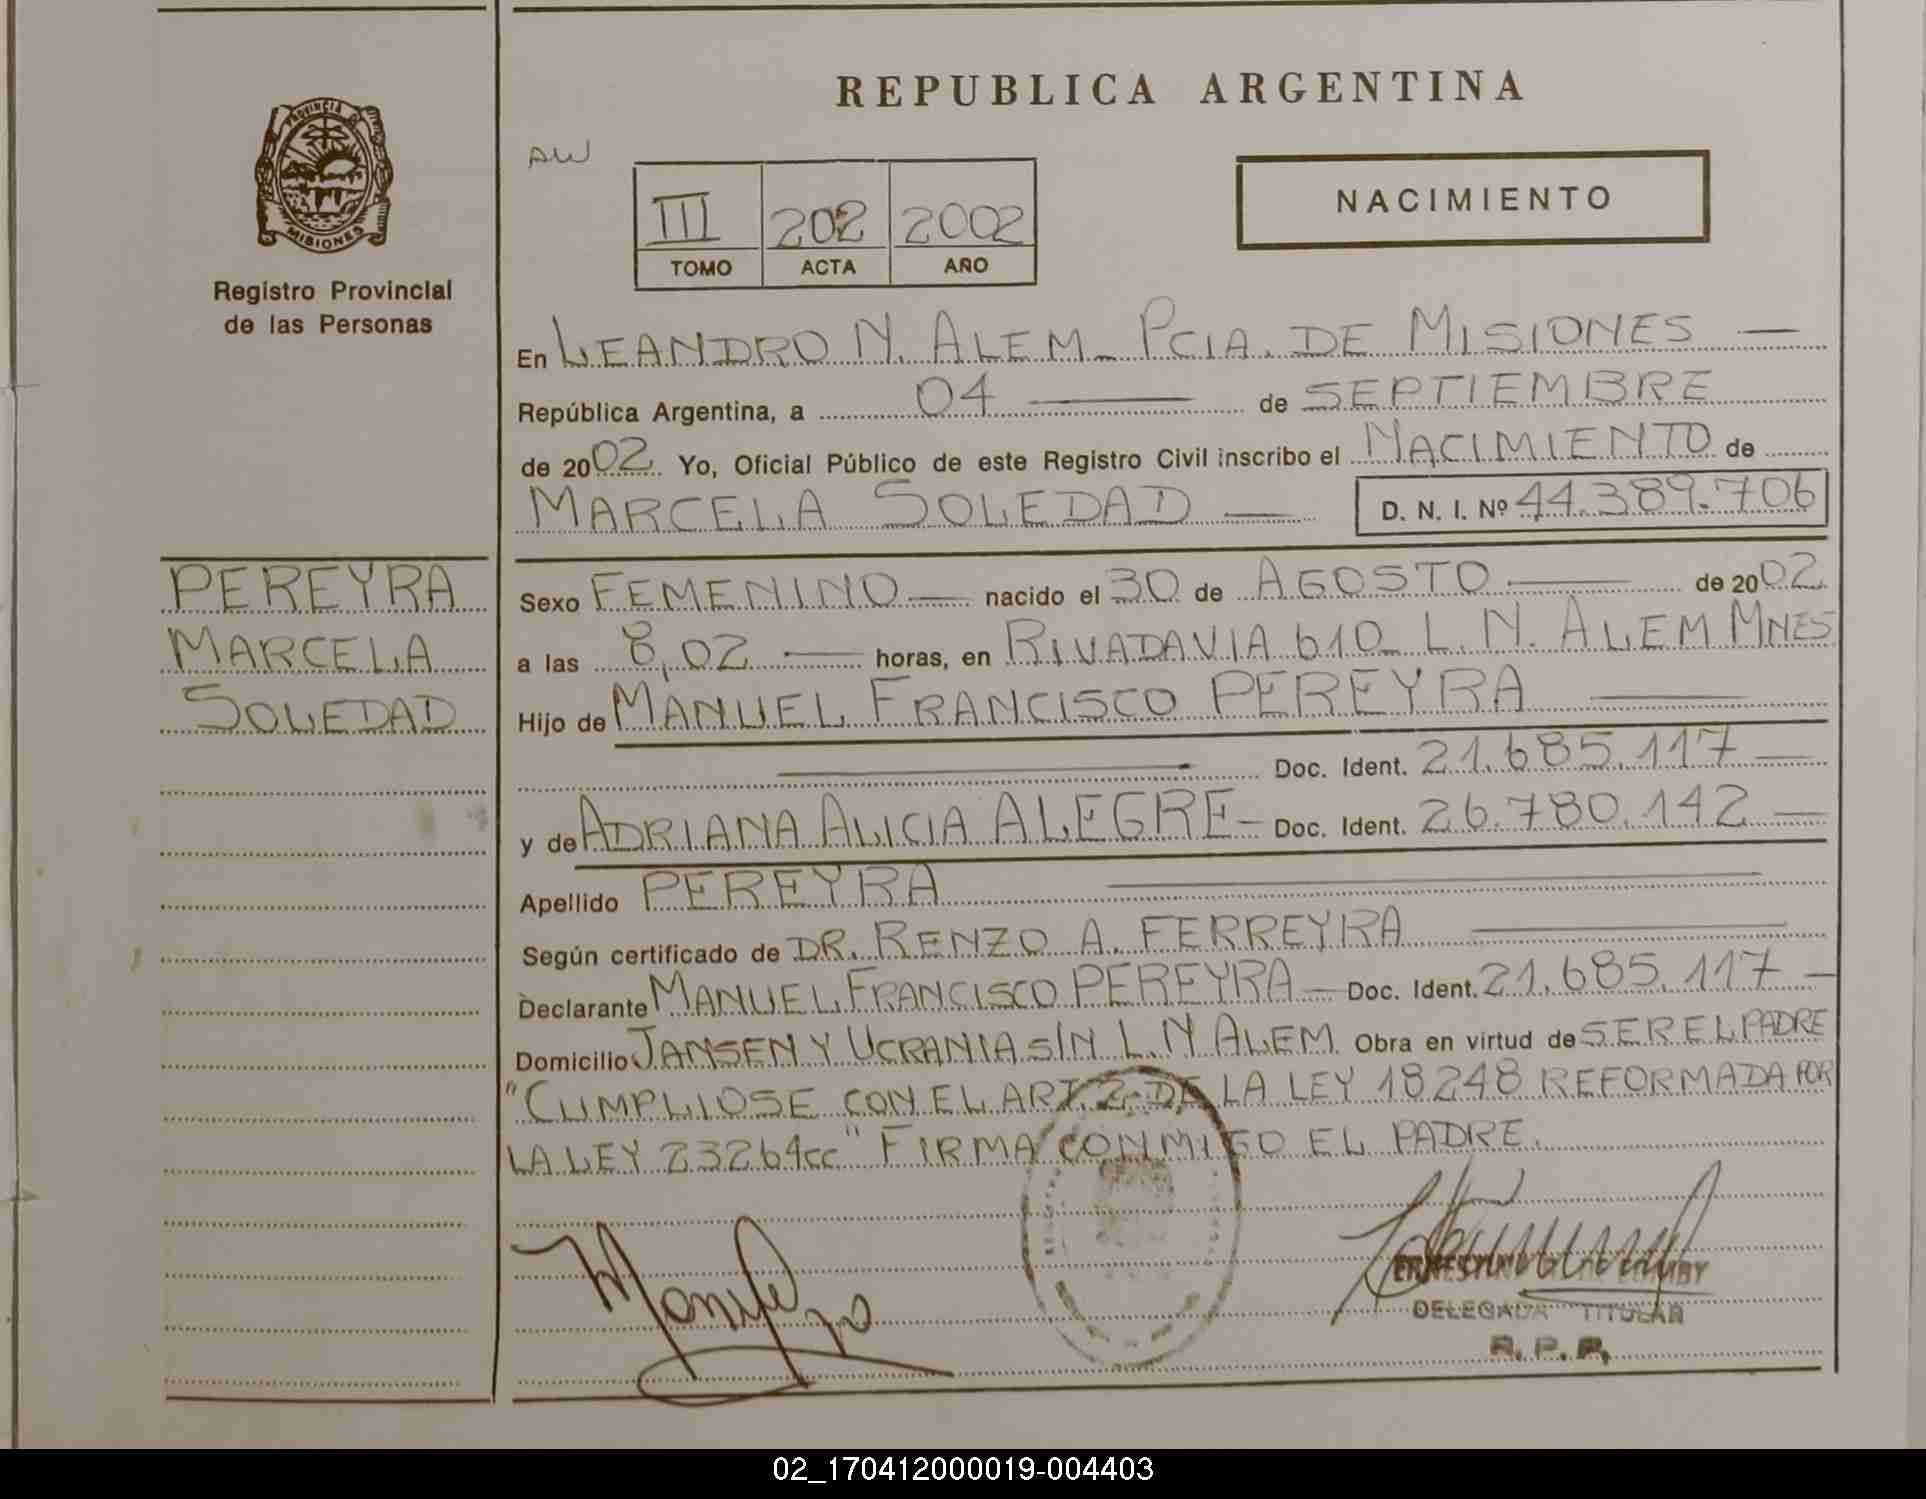 REPUBLICA ARGENTINA
PROVINCIA DE
MISIONES
Registro Provincial
de las Personas
AW
III 202 2002
TOMO ACTA AÑO
NACIMIENTO
En LEANDRO N. ALEM - PCIA. DE MISIONES —
República Argentina, a 04 — de SEPTIEMBRE
de 2002 Yo, Oficial Público de este Registro Civil inscribo el NACIMIENTO de
MARCELA SOLEDAD — D. N. I. Nº 44.389.706
PEREYRA
MARCELA
SOLEDAD
Sexo FEMENINO — nacido el 30 de AGOSTO — de 2002
a las 8,02 — horas, en RIVADAVIA 610 L. N. ALEM MNES
Hijo de MANUEL FRANCISCO PEREYRA —
— Doc. Ident. 21.685.117 —
y de ADRIANA ALICIA ALEGRE — Doc. Ident. 26.780.142 —
Apellido PEREYRA —
Según certificado de DR. RENZO A. FERREYRA —
Declarante MANUEL FRANCISCO PEREYRA — Doc. Ident. 21.685.117 —
Domicilio JANSEN Y UCRANIA S/N L. N ALEM Obra en virtud de SER EL PADRE
"CUMPLIOSE CON EL ART. 2 DE LA LEY 18248 REFORMADA POR
LA LEY 23264cc" FIRMA CONMIGO EL PADRE.
DELEGADA TITULAR
R. P. P.
02_170412000019-004403